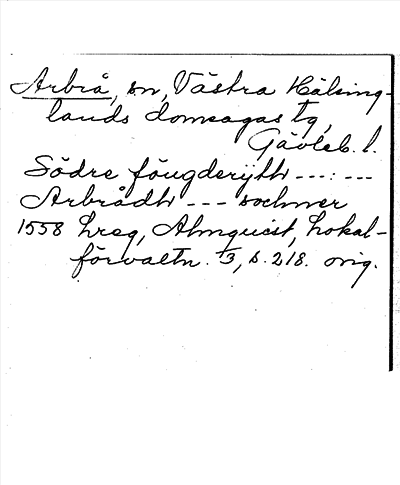 Arbrå, sn, Västra Hälsing-
lands domsagas tg,
Gävleb. l.
Södre föugderijtt ---:---
Arbrådh --- sochner
1558 hreg, Almquist, Lokal-
förvaltn. 3, s. 218. orig.